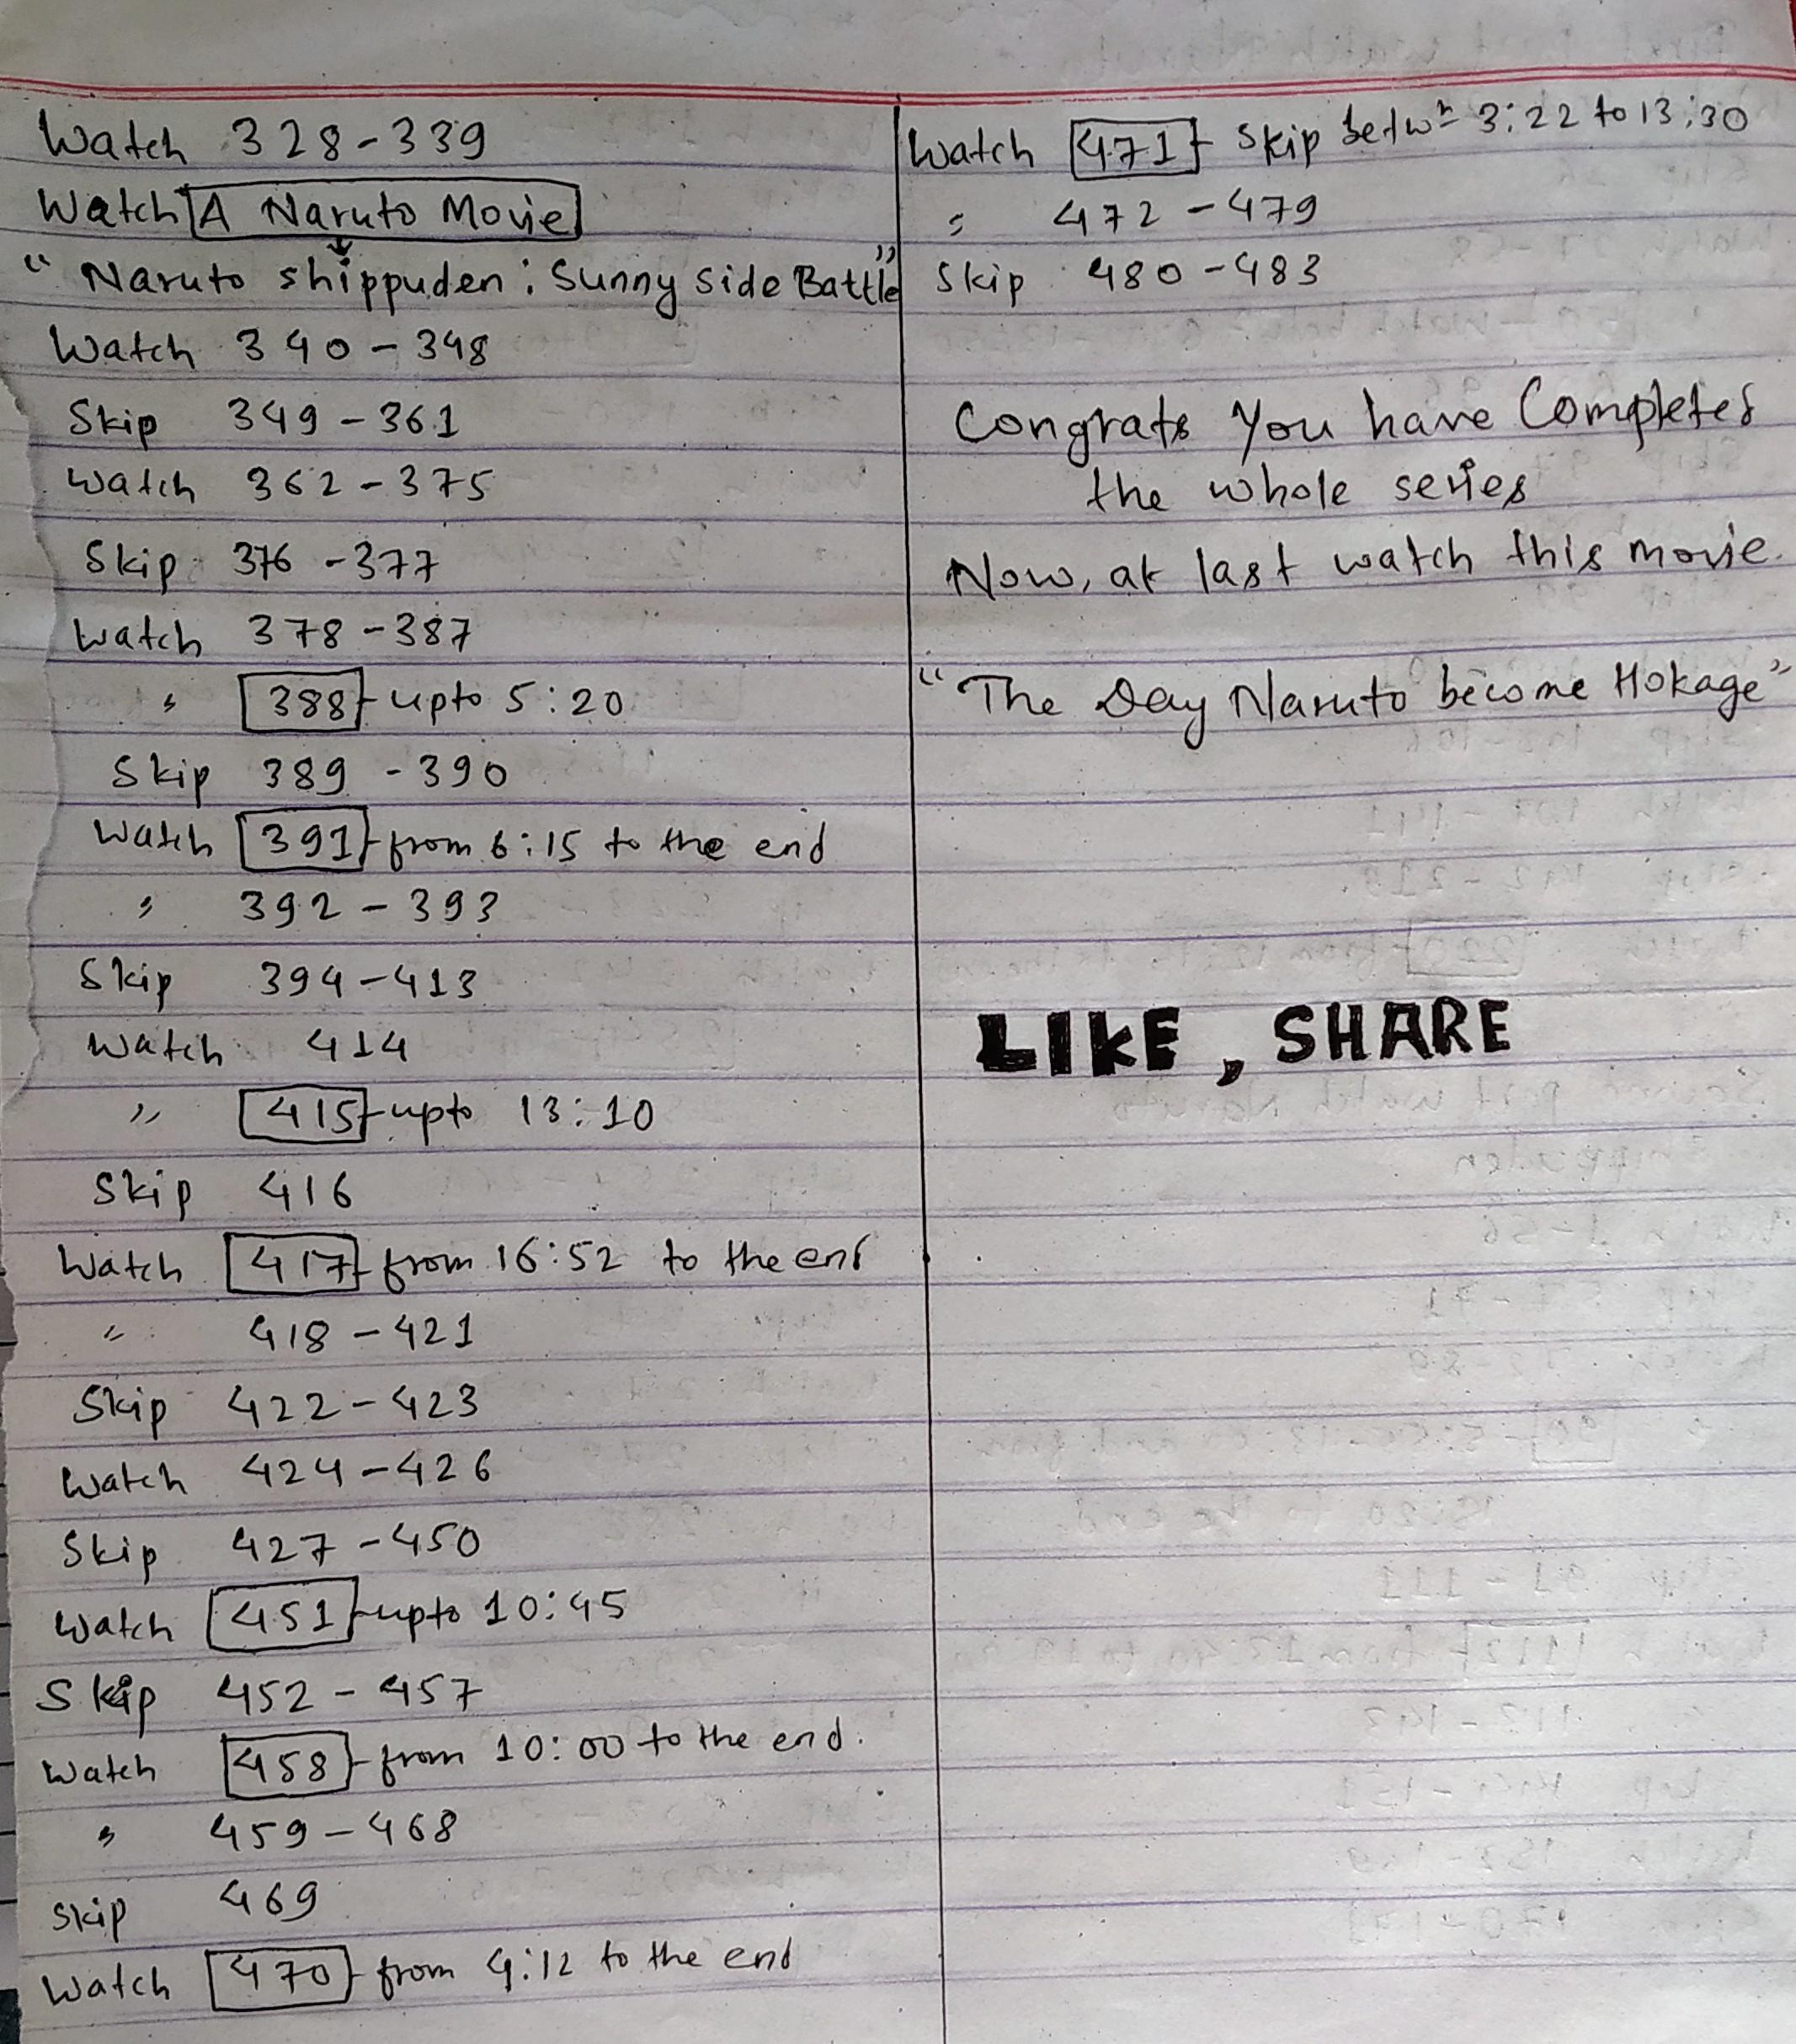 Watch 328-339
Watch A Naruto Movie
" Naruto shippuden : Sunny Side Battle"
Watch 340 - 348
Skip 349 - 361
Watch 362 - 375
Skip 376 - 377
Watch 378 - 387
" 388 - upto 5:20
Skip 389 - 390
Watch 391 - from 6:15 to the end
" 392 - 393
Skip 394 - 413
Watch 414
" 415 - upto 13:10
Skip 416
Watch 417 - from 16:52 to the end
" 418 - 421
Skip 422 - 423
Watch 424 - 426
Skip 427 - 450
Watch 451 - upto 10:45
Skip 452 - 457
Watch 458 - from 10:00 to the end.
" 459 - 468
Skip 469
Watch 470 - from 4:12 to the end
Watch 471 - Skip betwn 3:22 to 13:30
" 472 - 479
Skip 480 - 483
Congrats You have Completed
the whole series
Now, at last watch this movie.
"The Day Naruto become Hokage"
LIKE, SHARE